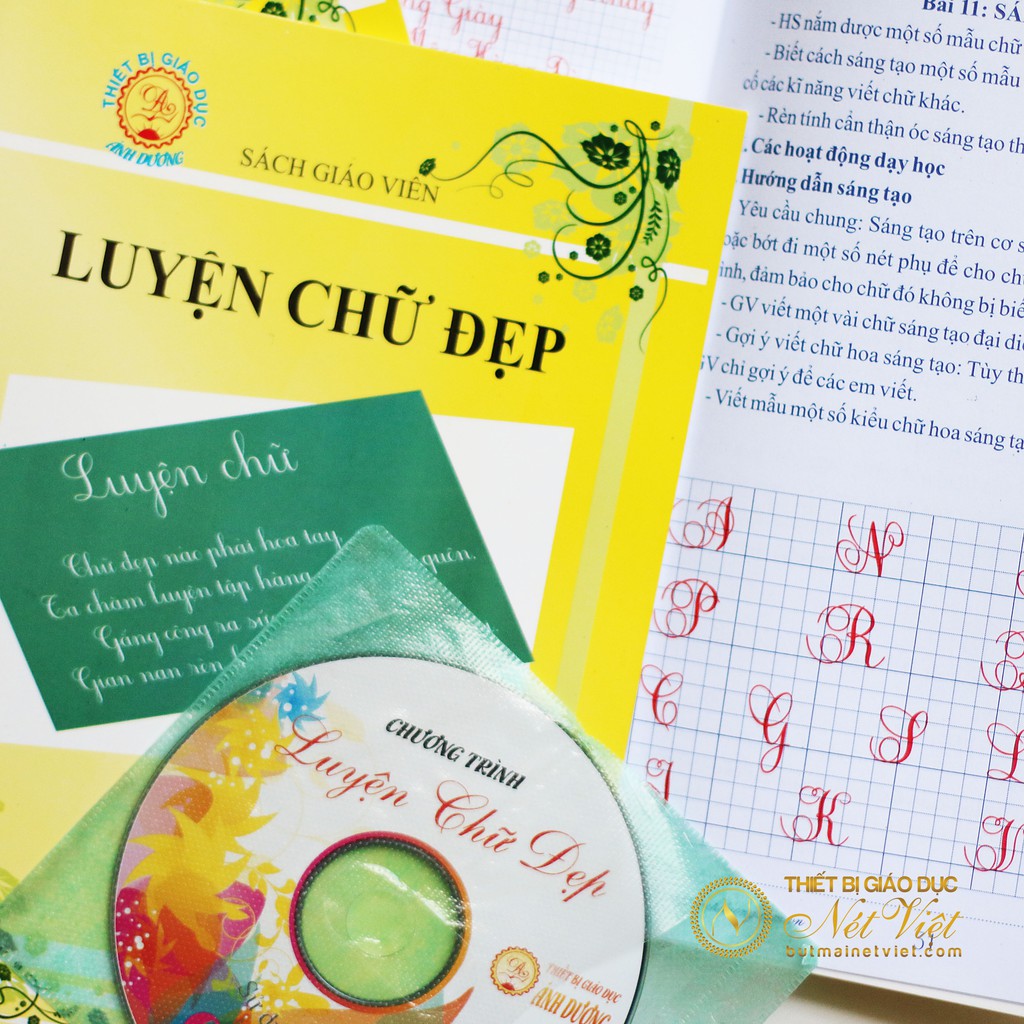 THIẾT BỊ GIÁO DỤC
ÁNH DƯƠNG
SÁCH GIÁO VIÊN
LUYỆN CHỮ ĐẸP
Luyện chữ
Chữ đẹp nào phải hoa tay
Ta chăm luyện tập hàng quên.
Gắng công ra
Gian nan rèn
CHƯƠNG TRÌNH
Luyện Chữ Đẹp
THIẾT BỊ GIÁO DỤC
ÁNH DƯƠNG
Giày
Bài 11:
- HS nắm được một số mẫu chữ
- Biết cách sáng tạo một số mẫu
cố các kĩ năng viết chữ khác.
- Rèn tính cẩn thận óc sáng tạo
Các hoạt động dạy học
Hướng dẫn sáng tạo
Yêu cầu chung: Sáng tạo trên cơ
bớt đi một số nét phụ để cho
đảm bảo cho chữ đó không bị
- GV viết một vài chữ sáng tạo đại
- Gợi ý viết chữ hoa sáng tạo: Tùy
GV chỉ gợi ý để các em viết.
- Viết mẫu một số kiểu chữ hoa sáng
A N
P R
C G S L
I K
THIẾT BỊ GIÁO DỤC
Nét Việt
butmainetviet.com